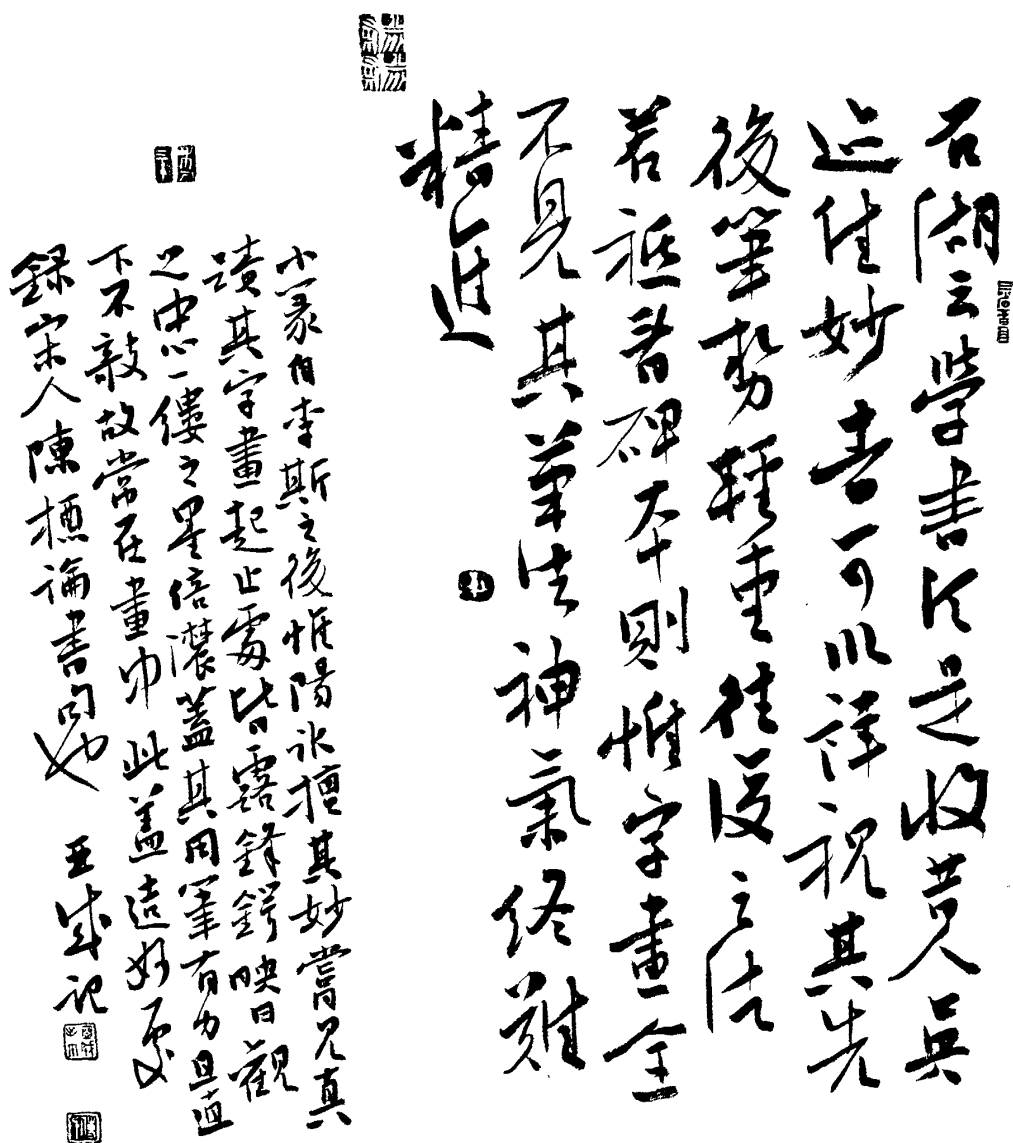 石湖云學書須是收昔人真
迹佳妙者可以詳視其先
後筆勢輕重往復之法
若祗看碑本則惟字畫全
不見其筆法神氣終難
精進
小篆自李斯之後惟陽冰擅其妙嘗見真
蹟其字畫起止處皆露鋒鍔映日觀
之中心一縷之墨倍濃蓋其用筆有力且直
下不敧故常在畫中此蓋造妙處
錄宋人陳槱論書句也 亞成記